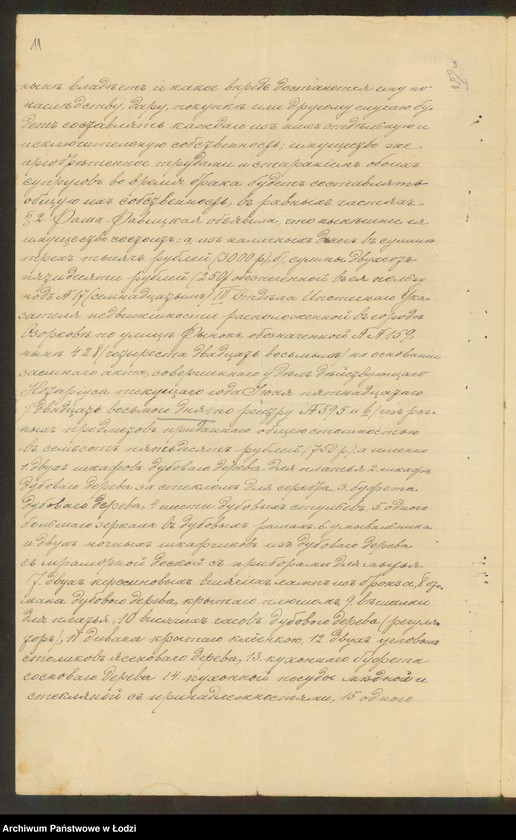 11
нынѣ владѣетъ и какое впредь достанется ему по
наслѣдству, дару, покупкѣ или другому случаю бу-
детъ составлять каждаго изъ нихъ отдѣльную и
исключительную собственность; имущество же
пріобрѣтенное трудами и стараніемъ обоихъ
супруговъ во время брака будетъ составлять
общую ихъ собственность, въ равныхъ частяхъ.-
§ 2. объявила, что нынѣшнее ея
имущество состоитъ: а, изъ наличныхъ денегъ въ суммѣ
трехъ тысячъ рублей (3000 р.) б, суммы двухсотъ
пятидесяти рублей (250 р.) обезпеченной въ ея пользу
подъ № 17 (семнадцатымъ) IV Отдѣла Ипотечнаго Ука-
зателя недвижимости расположенной въ городѣ
Озорковѣ по улицѣ Рынокъ обозначенной №№ 159,
нынѣ 428 (четыреста двадцать восьмымъ) на основаніи
заемнаго акта, совершеннаго у дѣйствующаго
Нотаріуса текущаго года Іюня пятнадцатаго
/двадцать восьмого дня/ по реестру № 595 и в/ изъ раз-
ныхъ предметовъ приданнаго общею стоимостью
въ семьсотъ пятьдесятъ рублей (750 р.), а именно
1. двухъ шкафовъ дубоваго дерева для платья 2. шкафа
дубоваго дерева за стекломъ для серебра, 3. буфета
дубоваго дерева, 4 шести дубовыхъ стульевъ, 5. одного
большаго зеркала въ дубовыхъ рамахъ 6. умывальника
и двухъ ночныхъ шкафчиковъ изъ дубоваго дерева
съ мраморной доской съ приборами для
7. двухъ керосиновыхъ висячихъ лампъ изъ бронза, 8. ото-
мана дубоваго дерева, крытаго плюшемъ 9. вѣшалки
для платья, 10 висячихъ часовъ дубоваго дерева (регуля-
торъ), 11 дивана крытаго клеенкою, 12 двухъ
столиковъ ясеноваго дерева, 13. кухоннаго буфета
сосноваго дерева 14. кухонной посуды мѣдной и
стекляной съ принадлежностями, 15 одного
Archiwum Państwowe w Łodzi